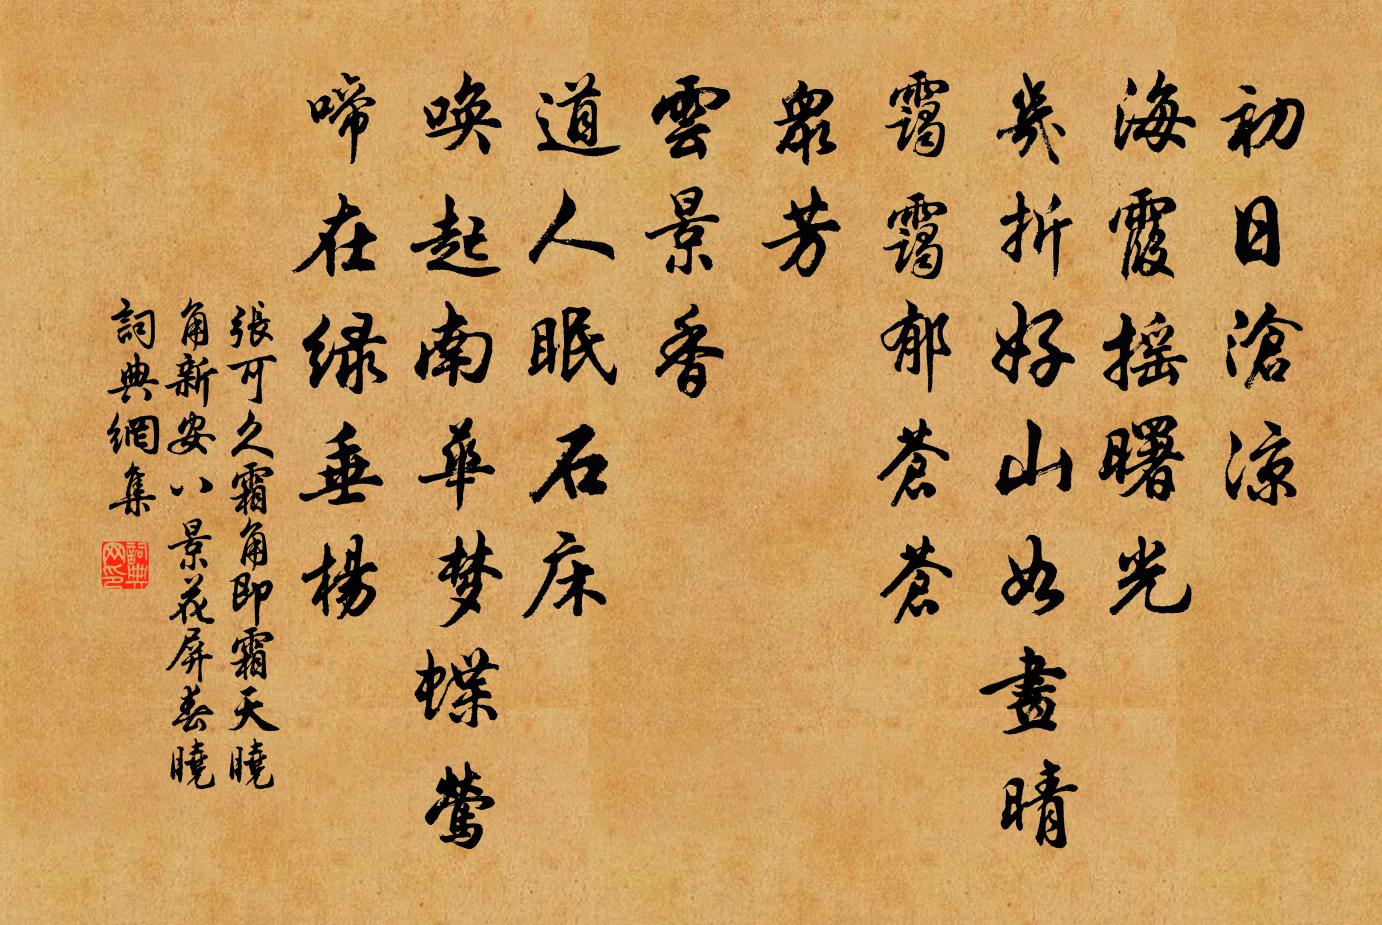 初日滄涼
海霞摇曙光
幾折好山如畫晴
靄靄郁蒼蒼
衆芳
雲景香
道人眠石床
唤起南華梦蝶鶯
啼在绿垂楊
張可久霜角即霜天曉
角新安八景花屏春曉
詞典網集
詞典網印